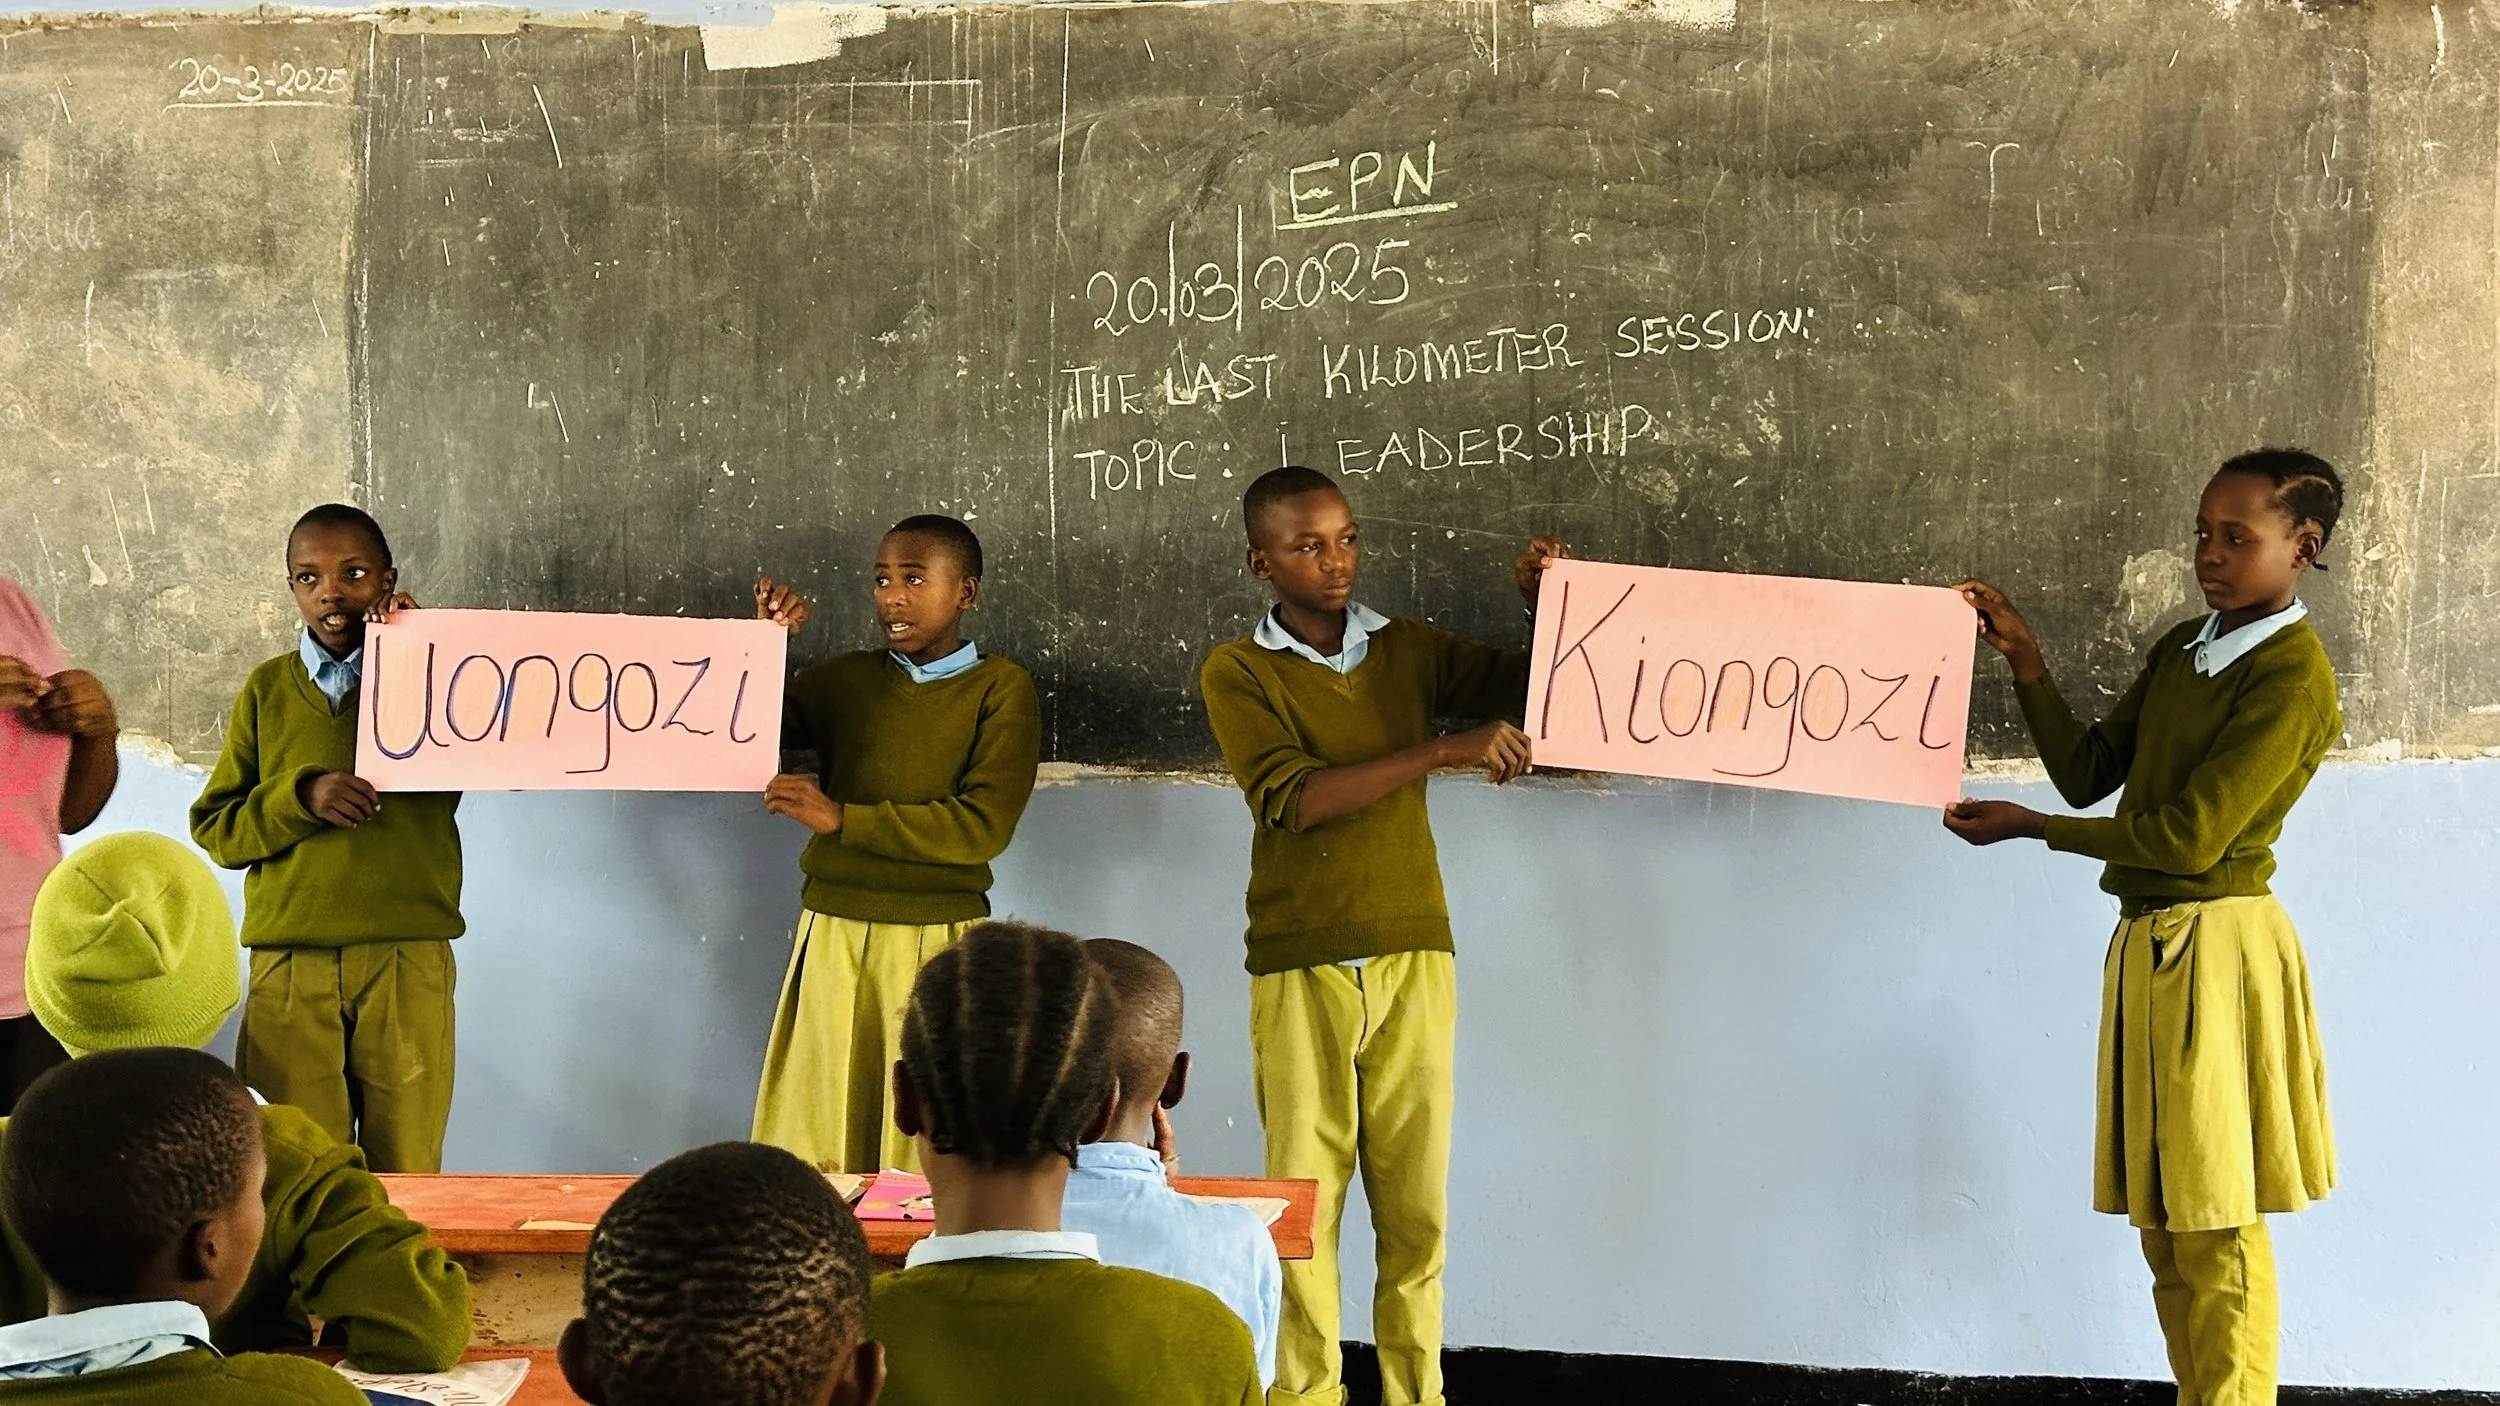 20-3-2025
EPN
20/03/2025
THE LAST KILOMETER SESSION:
TOPIC: LEADERSHIP
Uongozi
Kiongozi